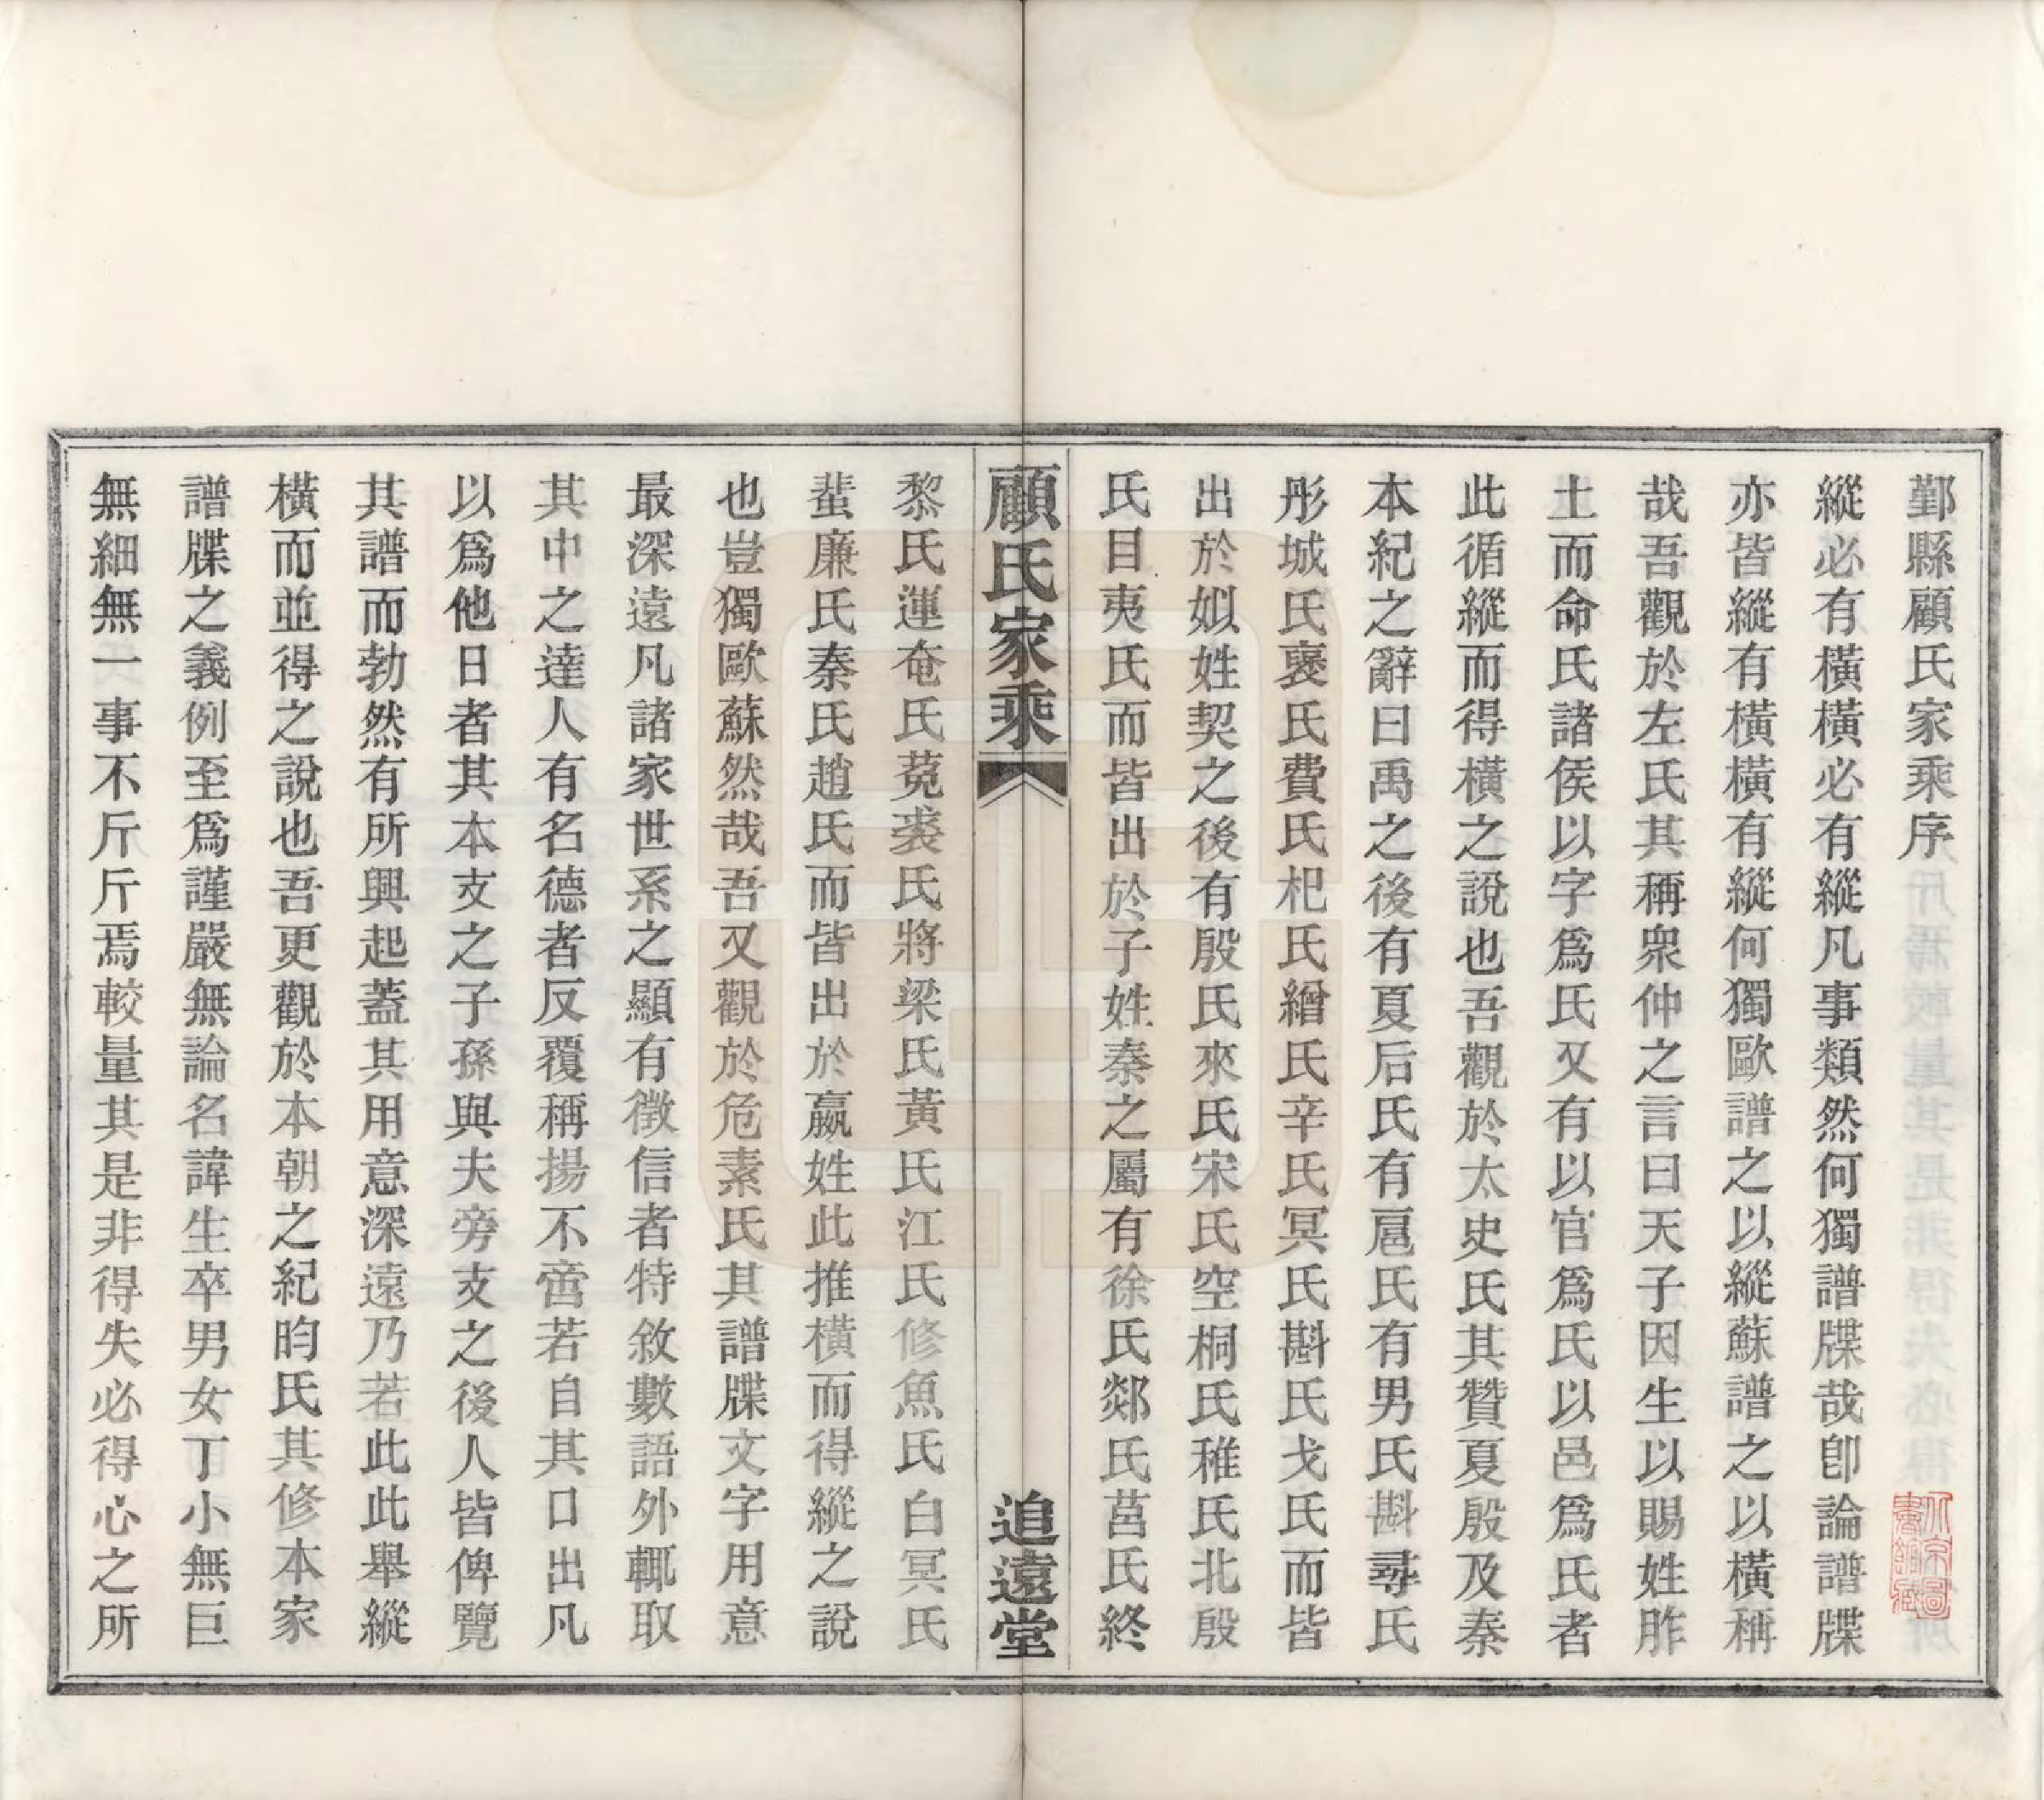 鄞縣顧氏家乘序
縱必有橫橫必有縱凡事類然何獨譜牒哉卽論譜牒
亦皆縱有橫橫有縱何獨歐譜之以縱蘇譜之以橫稱
哉吾觀於左氏其稱衆仲之言曰天子因生以賜姓胙
土而命氏諸侯以字爲氏又有以官爲氏以邑爲氏者
此循縱而得橫之說也吾觀於太史氏其贊夏殷及秦
本紀之辭曰禹之後有夏后氏有扈氏有男氏斟尋氏
彤城氏襃氏費氏杞氏繒氏辛氏冥氏斟氏戈氏而皆
出於姒姓契之後有殷氏來氏宋氏空桐氏稚氏北殷
氏目夷氏而皆出於子姓秦之屬有徐氏郯氏莒氏終
顧氏家乘
追遠堂
黎氏運奄氏菟裘氏將梁氏黃氏江氏修魚氏白冥氏
蜚廉氏秦氏趙氏而皆出於嬴姓此推橫而得縱之說
也豈獨歐蘇然哉吾又觀於危素氏其譜牒文字用意
最深遠凡諸家世系之顯有徵信者特敘數語外輒取
其中之達人有名德者反覆稱揚不啻若自其口出凡
以爲他日者其本支之子孫與夫旁支之後人皆俾覽
其譜而勃然有所興起蓋其用意深遠乃若此此舉縱
橫而並得之說也吾更觀於本朝之紀昀氏其修本家
譜牒之義例至爲謹嚴無論名諱生卒男女丁小無巨
無細無一事不斤斤焉較量其是非得失必得心之所